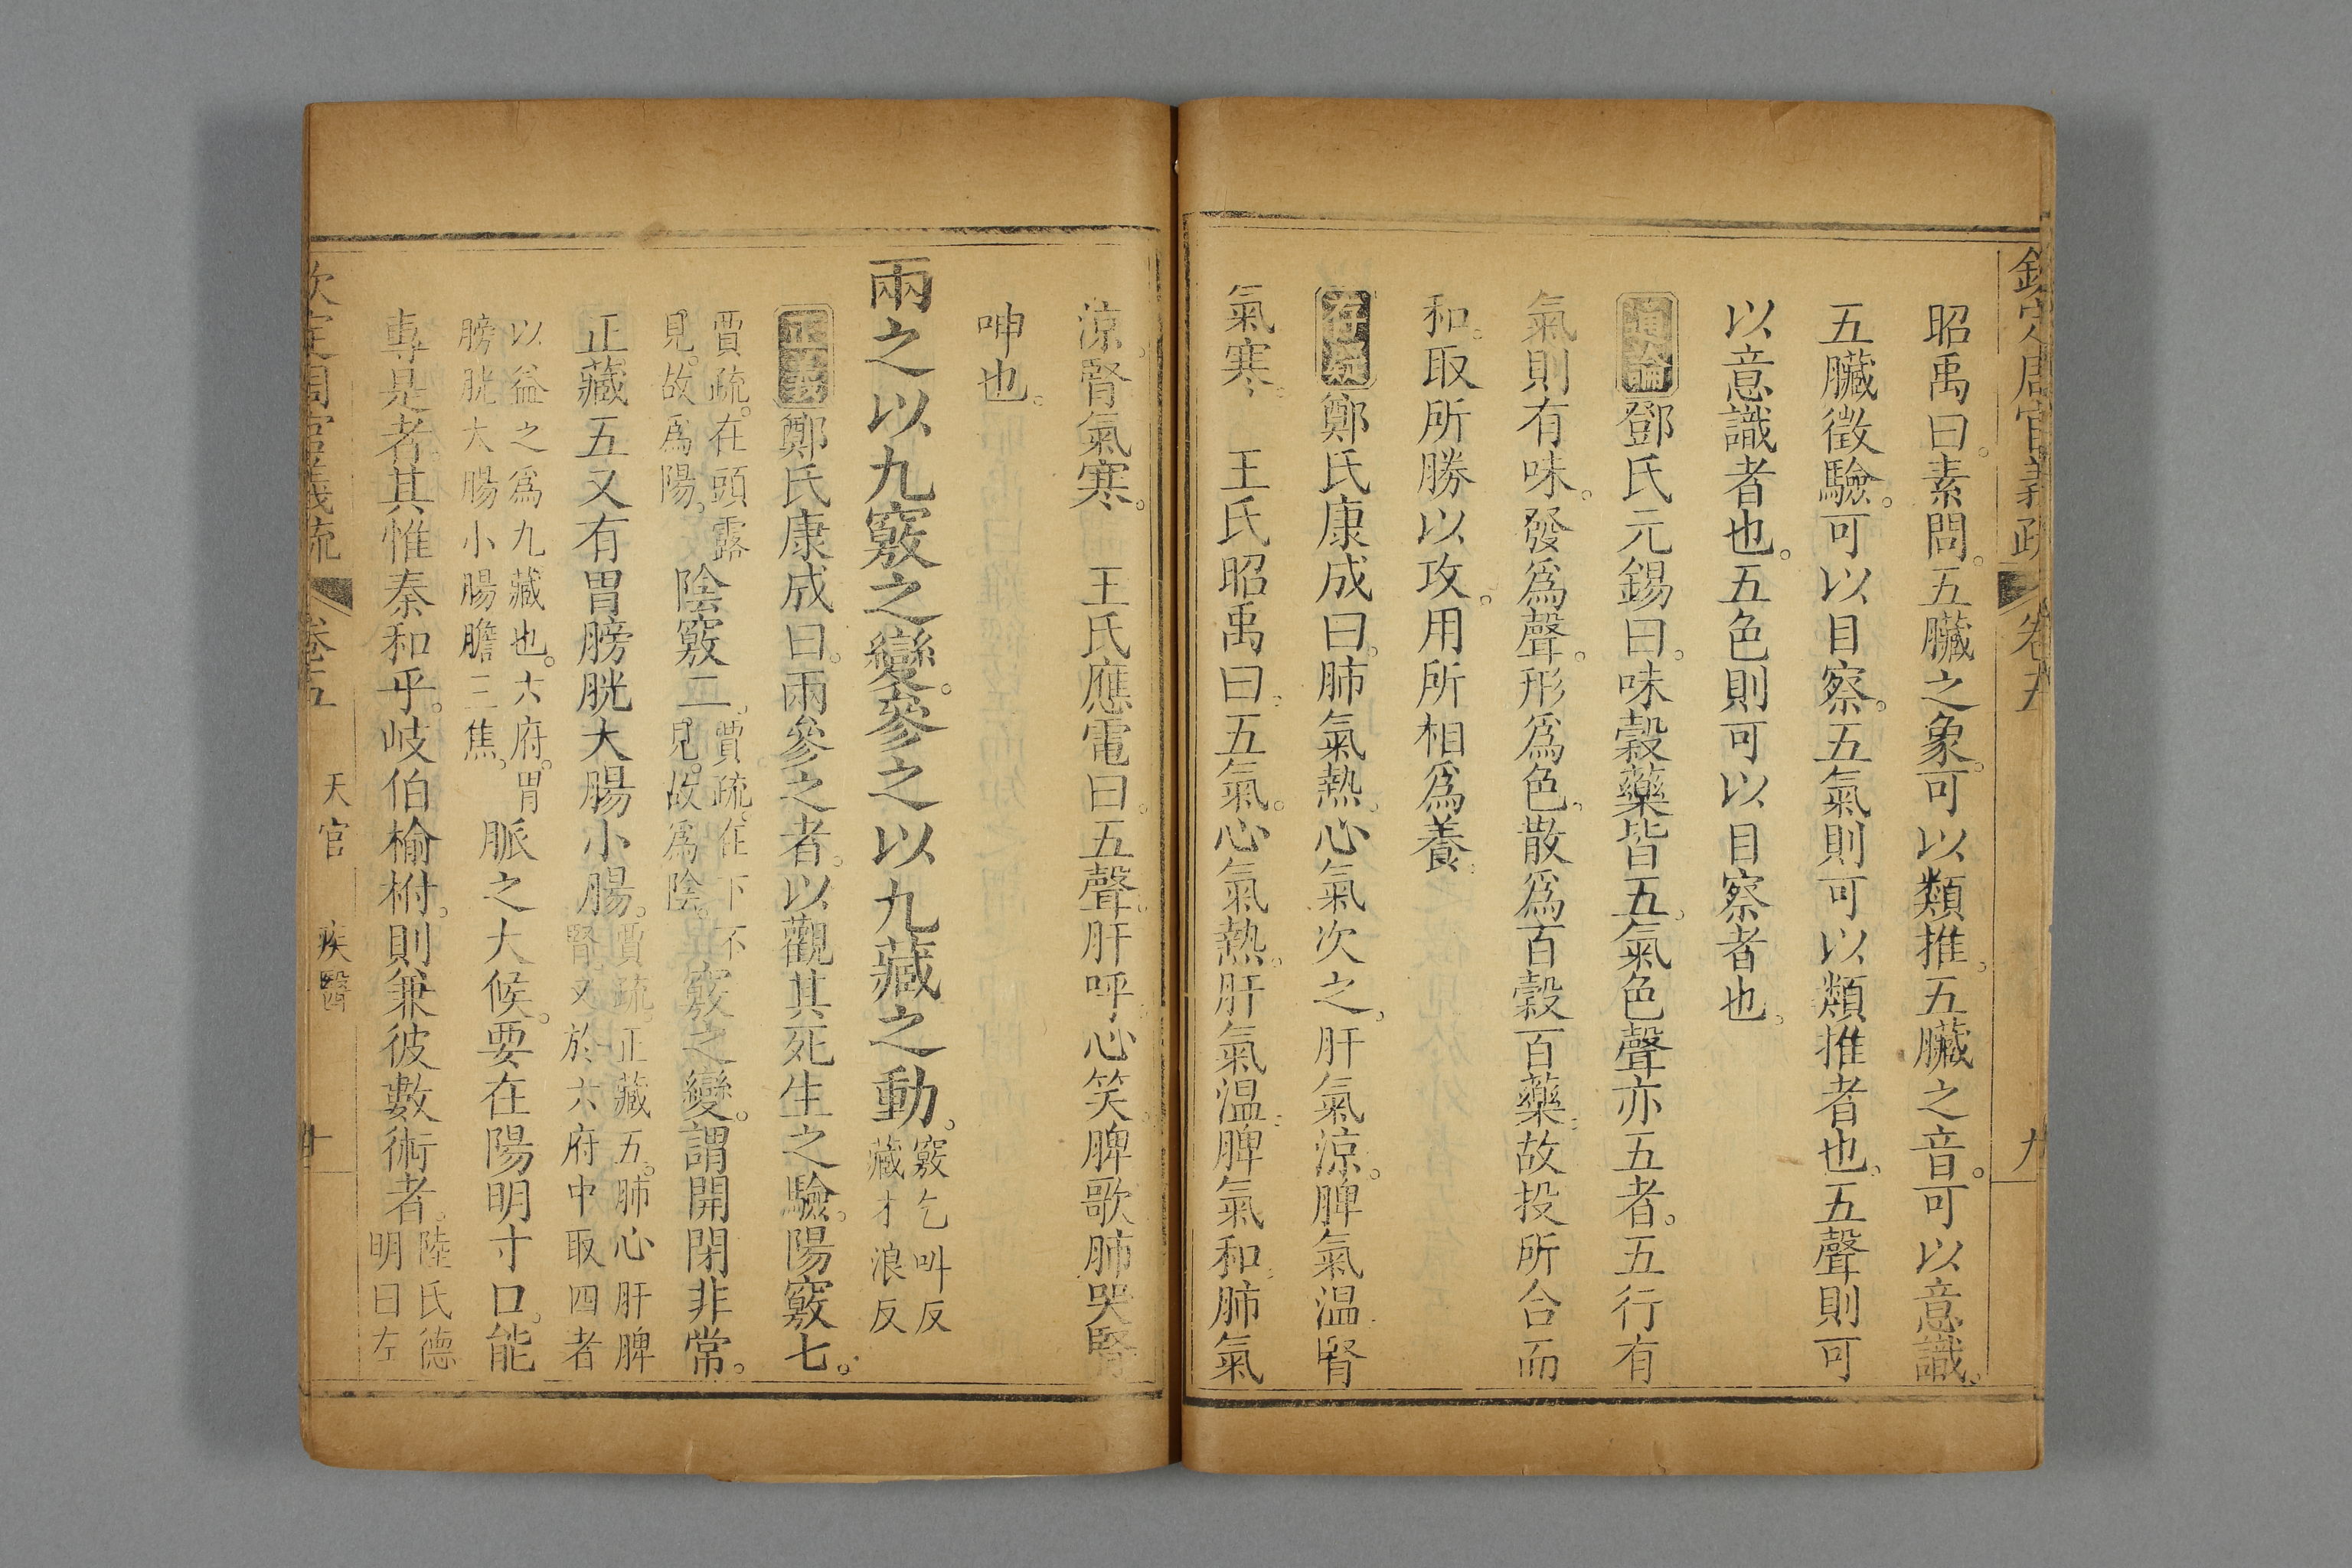 欽定周官義疏 卷五 九
昭禹曰。素問。五臟之象。可以類推。五臟之音。可以意識。
五臟徵驗。可以目察。五氣則可以類推者也。五聲則可
以意識者也。五色則可以目察者也。
通論 鄧氏元錫曰。味穀藥皆五。氣色聲亦五者。五行有
氣則有味。發爲聲。形爲色。散爲百穀百藥。故投所合而
和。取所勝以攻。用所相爲養。
存疑 鄭氏康成曰。肺氣熱。心氣次之。肝氣涼。脾氣温。腎
氣寒。 王氏昭禹曰。五氣。心氣熱。肝氣温。脾氣和。肺氣
涼。腎氣寒。 王氏應電曰。五聲。肝呼。心笑。脾歌。肺哭。腎
呻也。
兩之以九竅之變。參之以九藏之動。竅乞叫反
藏才浪反
正義 鄭氏康成曰。兩參之者。以觀其死生之驗。陽竅七。
賈疏。在頭露
見。故爲陽。陰竅二。賈疏。在下不
見。故爲陰。竅之變。謂開閉非常。
正藏五。又有胃膀胱大腸小腸。賈疏。正藏五。肺心肝脾
腎。又於六府中取四者
以益之爲九藏也。六府。胃
膀胱大腸小腸膽三焦。脈之大候。要在陽明寸口。能
專是者。其惟秦和乎。岐伯榆柎。則兼彼數術者。陸氏德
明曰左
欽定周官義疏 卷五 天官 疾醫 十